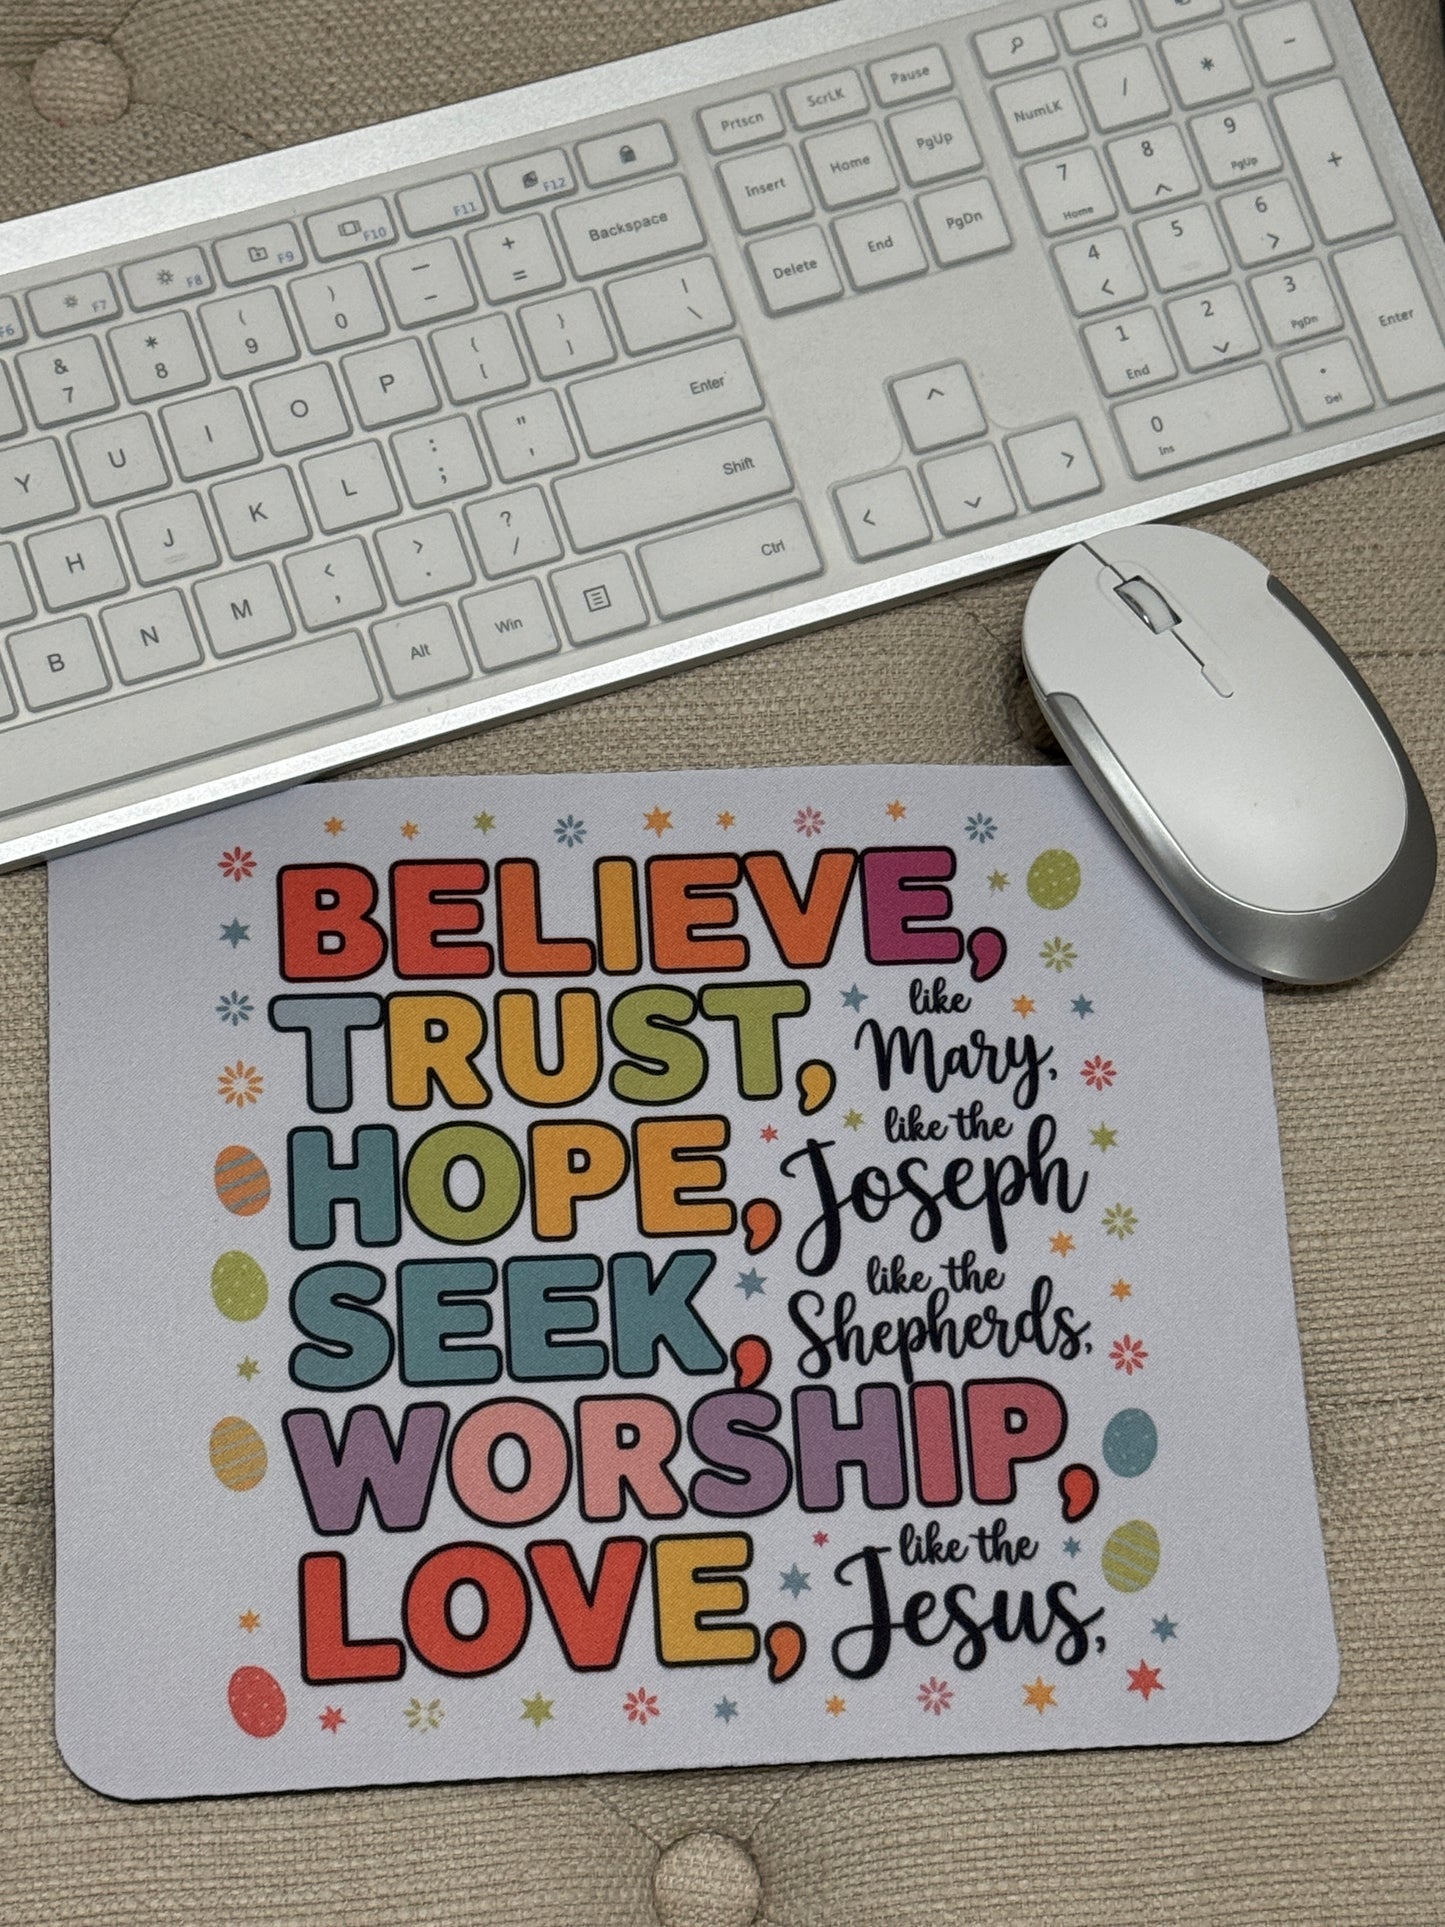 Prtscn ScrLK Pause
F6 F7 F8 F9 F10 F11 F12
& 7 * 8 ( 9 ) 0 — - + = Backspace
Insert Home PgUp
NumLK / * -
Y U I O P { [ } ] | \
Delete End PgDn
7 Home 8 9 PgUp +
H J K L : ; " ' Enter
4 5 6
B N M < , > . ? / Shift
1 End 2 3 PgDn Enter
Alt Win Ctrl
0 Ins . Del
BELIEVE,
TRUST, like
Mary,
HOPE, like the
Joseph
SEEK, like the
Shepherds,
WORSHIP,
LOVE, like the
Jesus,